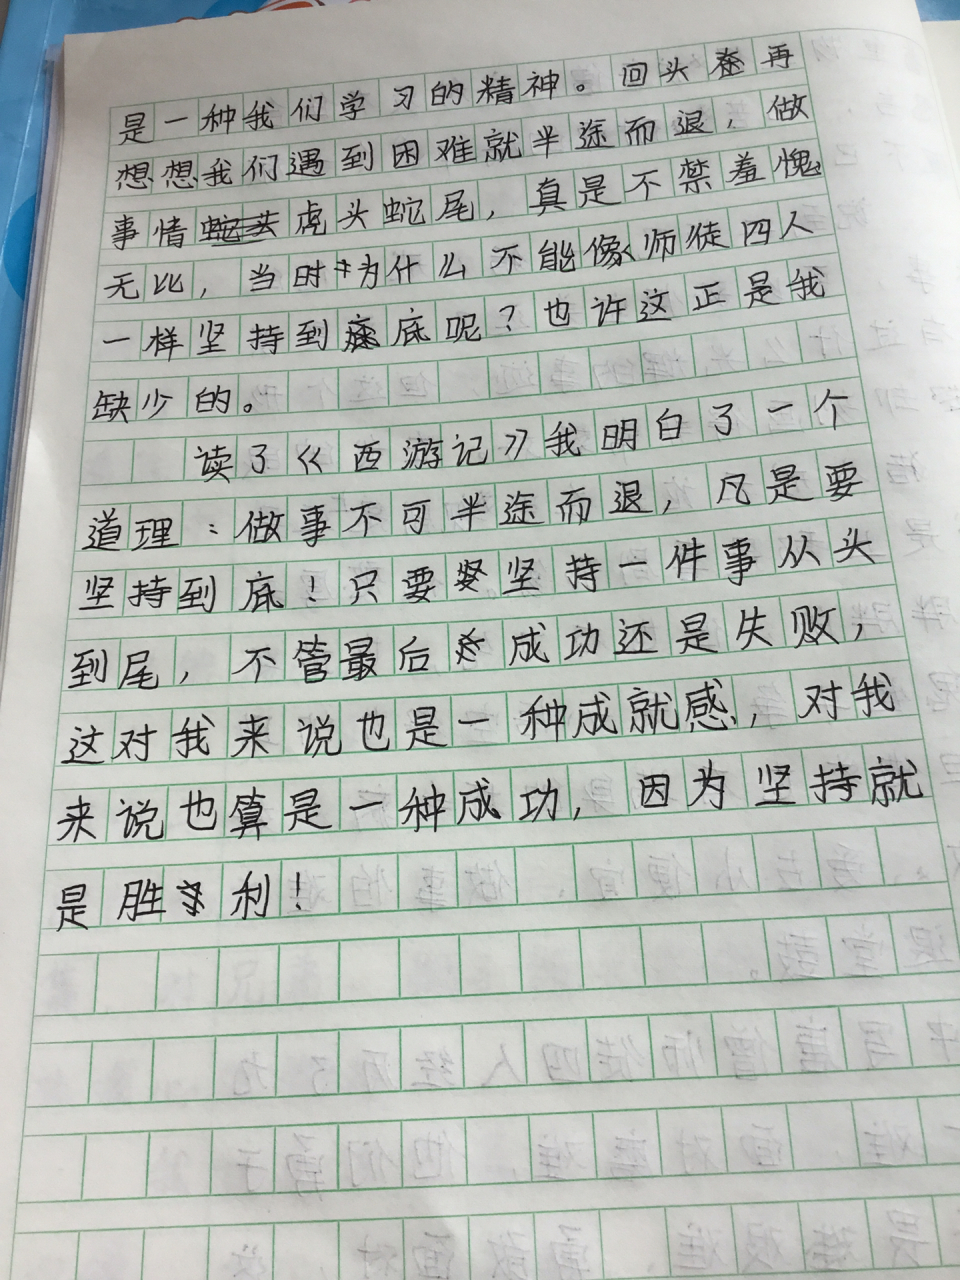 是一种我们学习的精神。回头再
想想我们遇到困难就半途而退，做
事情虎头蛇尾，真是不禁羞愧
无比，当时为什么不能像师徒四人
一样坚持到底呢？也许这正是我
缺少的。
读了《西游记》我明白了一个
道理：做事不可半途而退，凡是要
坚持到底！只要坚持一件事从头
到尾，不管最后成功还是失败，
这对我来说也是一种成就感，对我
来说也算是一种成功，因为坚持就
是胜利！